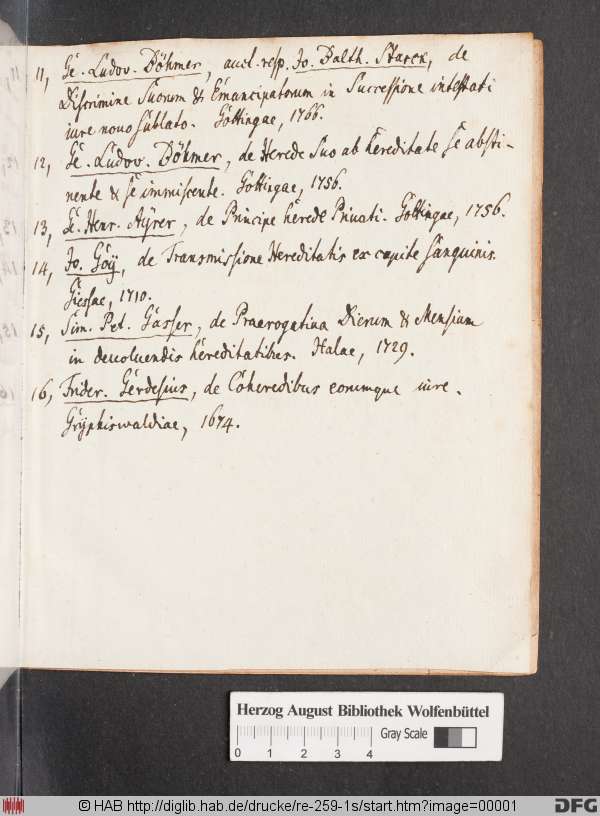 11, Ge. Ludov. Böhmer, auct. resp. Jo. Balth. Starck, de
Discrimine Suorum & Emancipatorum in Successione intestati
iure novo sublato. Gottingae, 1766.
12, Ge. Ludov. Böhmer, de Herede suo ab hereditate se absti-
nente & se immiscente. Gottingae, 1756.
13, Ge. Henr. Ayrer, de Principe herede Privati. Gottingae, 1756.
14, Jo. Göy, de Transmissione Hereditatis ex capite sanguinis.
Giessae, 1710.
15, Sim. Pet. Gasser, de Praerogativa Dierum & Mensium
in devoluendis hereditatibus. Halae, 1729.
16, Frider. Gerdesius, de Coheredibus eorumque iure.
Gryphiswaldiae, 1674.
Herzog August Bibliothek Wolfenbüttel
Gray Scale
0 1 2 3 4
© HAB http://diglib.hab.de/drucke/re-259-1s/start.htm?image=00001
DFG